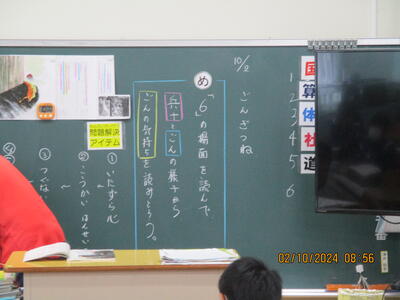 10/2
ごんぎつね
め
「6」の場面を読んで、
兵十とごんの様子から
ごんの気持ちを読みとろう。
問題解決
アイテム
① いたずら心
② こうかい はんせい
③ つぐない
1 国
2 算
3 体
4 社
5 道
6
02/10/2024 08:56